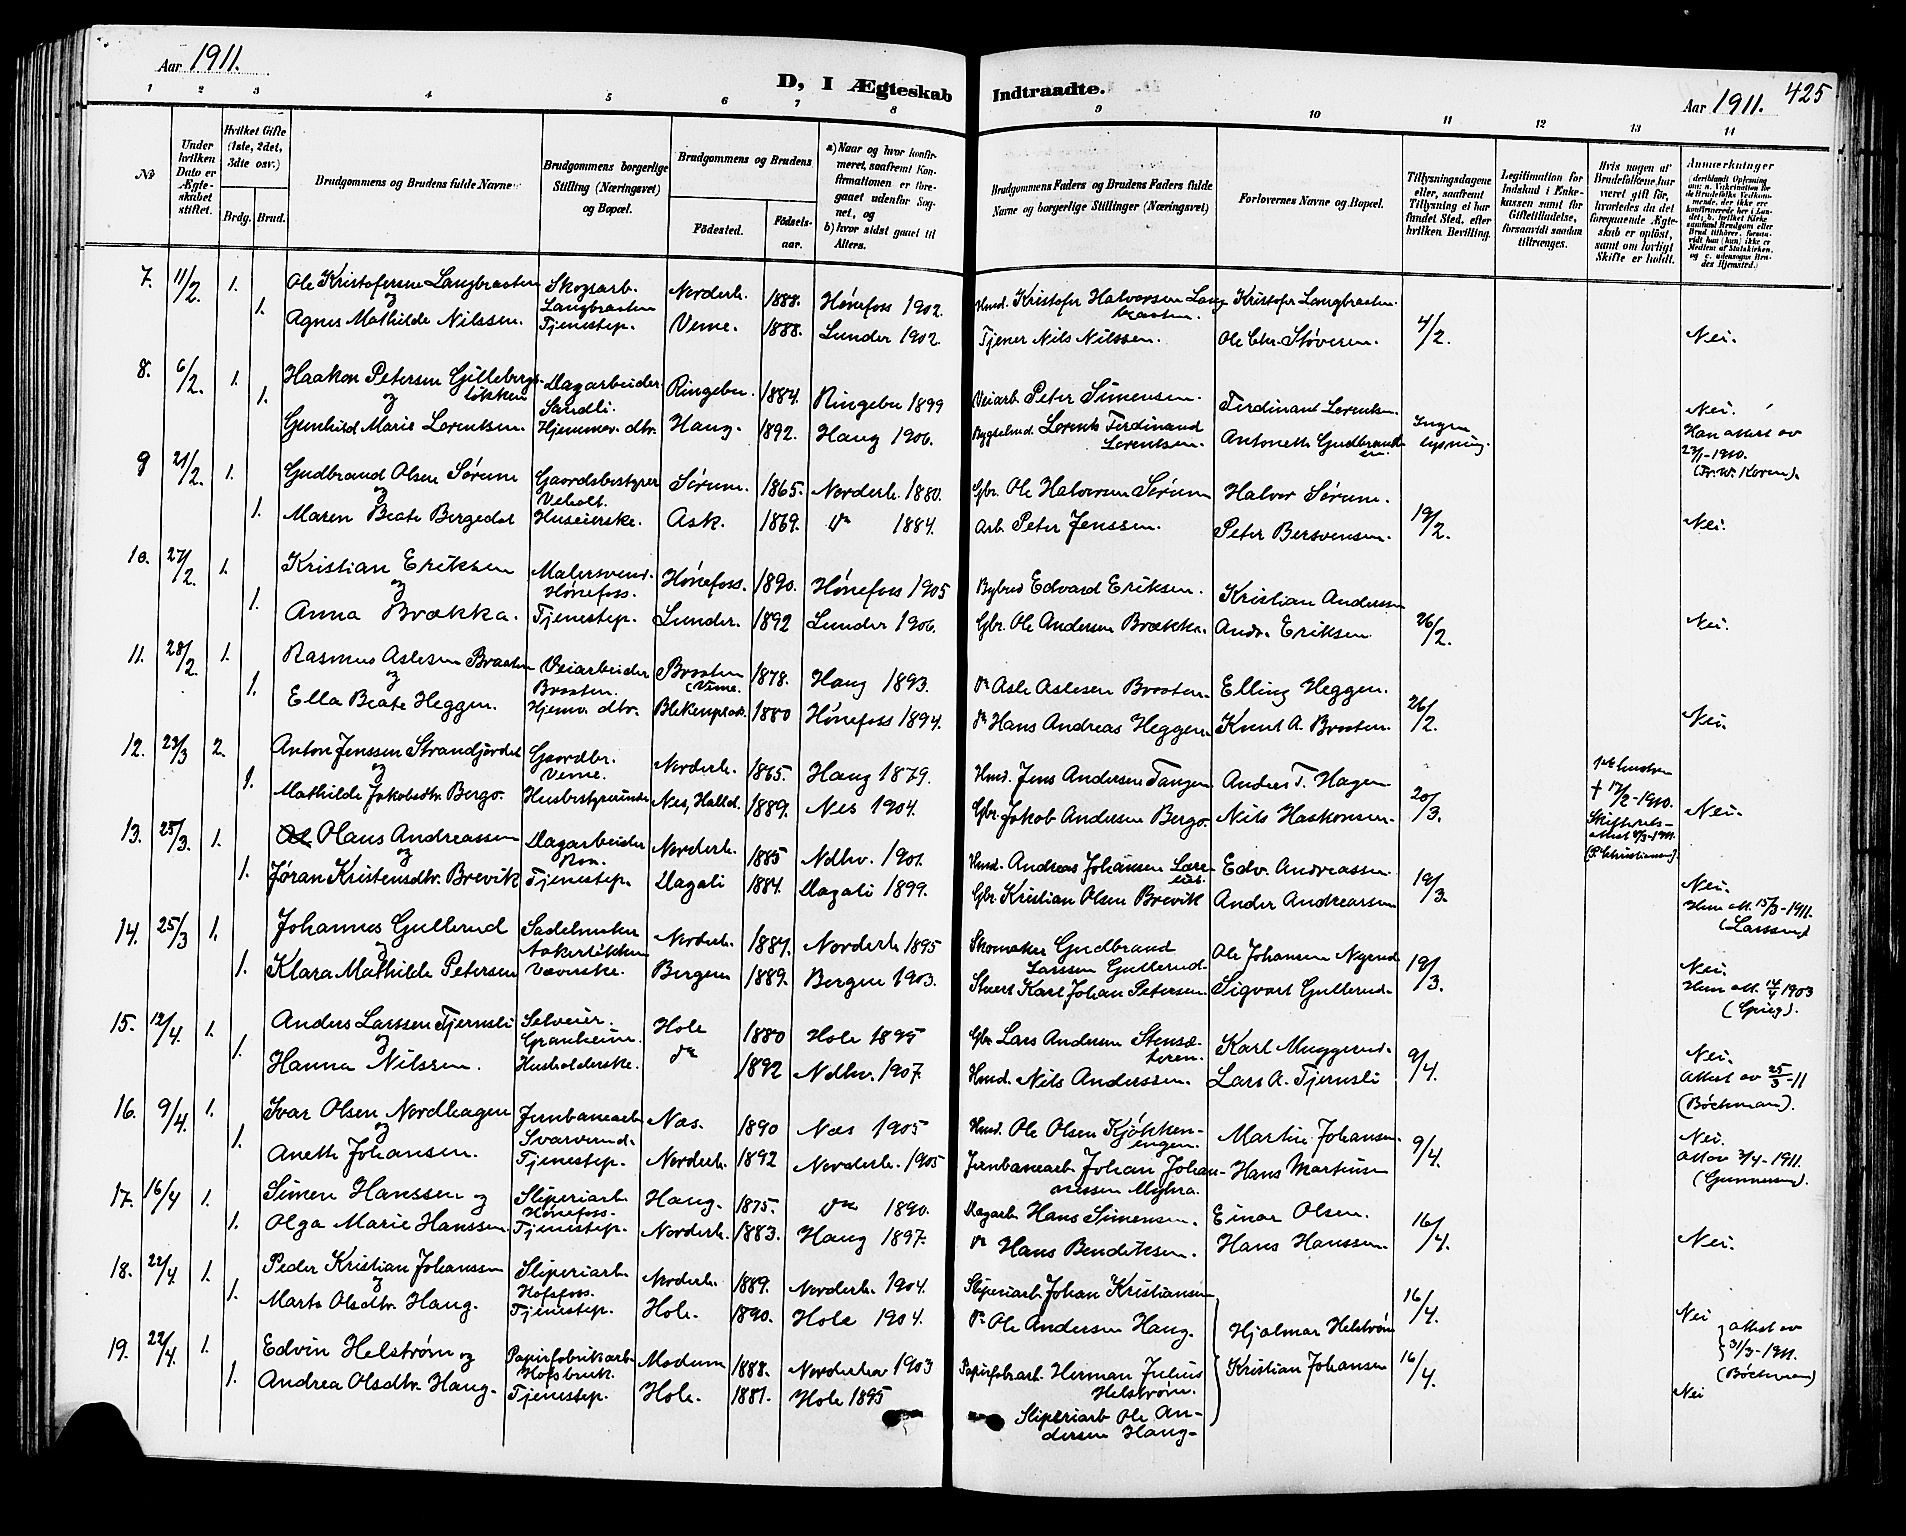 Aar 1911.
D, I Ægteskab Indtraadte.
Aar 1911. 425
1 2 3 4 5 6 7 8 9 10 11 12 13 14
No
Under hvilken Dato er Ægteskabet stiftet.
Hvilket Gifte (1ste, 2det, 3die osv.)
Brdg. Brud.
Brudgommens og Brudens fulde Navne
Brudgommens borgerlige Stilling (Næringsvei) og Bopæl.
Brudgommens og Brudens
Födested. Födsels-aar.
a) Naar og hvor konfirmeret, saafremt Konfirmationen er foregaaet udenfor Sognet, og
b) hvor sidst gaaet til Alters.
Brudgommens Faders og Brudens Faders fulde Navne og borgerlige Stillinger (Næringsvei)
Forlovernes Navne og Bopæl.
Tillysningsdagene eller, saafremt Tillysning ei har fundet Sted, efter hvilken Bevilling.
Legitimation for Indskud i Enkekassen samt for Giftetilladelse, forsaavidt saadan tiltrænges.
Hvis nogen af Brudefolkene har været gift för, hvorledes da det foregaaende Ægteskab er oplöst, samt om lovligt Skifte er holdt.
Anmærkninger
7. 11/2. 1. Ole Kristofersen Langbraaten Skogsarb. Langbraaten Norderh. 1888. Hønefoss 1902. Hmd. Kristofer Halvorsen Langbraaten. Kristofer Langbraaten
og
1. Agnes Mathilde Nilssen. Tjenestep. Veme. 1888. Lunder 1902. Tjener Nils Nilssen. Ole Chr. Støveren. 4/2. Nei.
8. 6/2. 1. Haakon Petersen Gillebergsløkken Dagarbeider Sandli. Ringebu. 1884. Ringebu 1899 Veiarb. Peter Simensen. Ferdinand Lorentsen.
og
1. Gunhild Marie Lorentsen. Hjemmev. dtr. Haug. 1892. Haug 1906. Bygselmd. Lorents Ferdinand Lorentsen. Antoneth Gudbrandsen. Ingen lysning. Nei. Han attest av 23/1-1910.
9 21/2. 1. Gudbrand Olsen Sørum Gaardsbestyrer Veholt. Sørum. 1865. Norderh. 1880. Gbr. Ole Halvorsen Sørum Halvor Sørum.
og
1. Maren Beate Bergedal Huseierske. Ask. 1869. do 1884. Arb. Peter Jenssen. Peter Bersvensen. 19/2. Nei.
10. 27/2. 1. Kristian Eriksen Malersvend. Hønefoss. Hønefoss. 1890. Hønefoss 1905 Bybud Edvard Eriksen. Kristian Andersen
og
1. Anna Brækka. Tjenestep. Lunder. 1892 Lunder 1906. Gbr. Ole Andersen Brækka. Andr. Eriksen. 26/2. Nei.
11. 28/2. 1. Rasmus Aslesen Braaten Veiarbeider Braaten. Braaten (Veme. 1878. Haug 1893. do Asle Aslesen Braaten. Elling Heggen.
og
1. Ella Beate Heggen. Hjemv. dtr. 1880 Hønefoss 1894. do Hans Andreas Heggen. Knut A. Braaten. 26/2. Nei.
12. 23/3 2. Anton Jenssen Strandjordet Gaardbr. Veme. Norderh. 1865. Haug 1879. Hmd. Jens Andersen Tangen Anders T. Hagen 1ste hustru † 17/2-1910.
og
1. Mathilde Jakobsdtr. Bergo. Husbestyrerinde Nes, Halld. 1889. Nes 1904. Gbr. Jakob Andersen Bergo. Nils Haakonsen. 20/3. Skifterets-attest (P. Christiansen). Nei.
13. 25/3. 1. Hans Andreassen Dagarbeider Norderh. 1885 Ndhv. 1901. Hmd. Andreas Johansen Edv. Andreassen
og
1. Jøran Kristensdtr. Brevik Tjenestep. Dagali 1884. Dagali 1899. Gbr. Kristian Olsen Brevik Ander Andreassen 19/3. Nei. Hun att. 15/3-1911. (Larssen)
14. 25/3 1. Johannes Gullerud Sadelmaker Norderh. 1881. Norderh 1895 Skomaker Gudbrand Larssen Gullerud. Ole Johansen Nyrud
og
1. Klara Mathilde Petersen Væverske. Bergen 1889. Bergen 1903. Stuert Karl Johan Petersen. Sigvart Gullerud. 19/3. Nei. Hun att. 14/4 1903 (Grieg).
15. 12/4. 1. Anders Larssen Tjernsli Selveier. Granheim. Hole 1880 Hole 1895 Gbr. Lars Andersen Stensæteren. Karl Muggerud.
og
1. Hanna Nilssen. Husholderske. do 1892 Ndhv. 1907. Hmd. Nils Anderssen. Lars A. Tjernsli 9/4. Nei. Attest av 25/3-11 (Böckman).
16. 9/4. 1. Ivar Olsen Nordhagen Jernbanearb Svarverud. Næs. 1890 Næs 1905 Hmd. Ole Olsen Kjøkkenengen. Martin Johansen.
og
1. Anette Johansen. Tjenestep. Norderh. 1892 Norderh. 1905 Jernbanearb. Johan Johannessen Myhra. Hans Martinsen 9/4. Nei. Attest 3/4-1911. (Gunnerud).
17. 16/4 1. Simen Hanssen og Sliperiarb Hønefoss. Haug. 1875. do 1890. Dagarb. Hans Simensen. Einar Olsen.
1. Olga Marie Hanssen. Tjenestep. Norderh. 1883. Haug 1897. do Hans Bendiksen. Hans Hanssen 16/4. Nei.
18. 22/4. 1. Peder Kristian Johanssen Sliperiarb Hofsfoss. Norderh. 1889. Norderh. 1904. Sliperiarb Johan Kristiansen
og
1. Marte Olsdtr. Haug. Tjenestep. Hole. 1890. Hole 1904. do Ole Andersen Haug. Hjalmar Helstrøm 16/4. Nei
19. 22/4. 1. Edvin Helstrøm og Papirfabrikarb Hofsbruk. Modum 1888. Norderhov 1903 Papirfabarb. Herman Julius Helstrøm. Kristian Johansen 16/4. attest av 31/3-1911. (Böckman)
1. Andrea Olsdtr. Haug. Tjenestep. Hole. 1881. Hole 1895 Sliperiarb Ole Andersen Haug. Nei